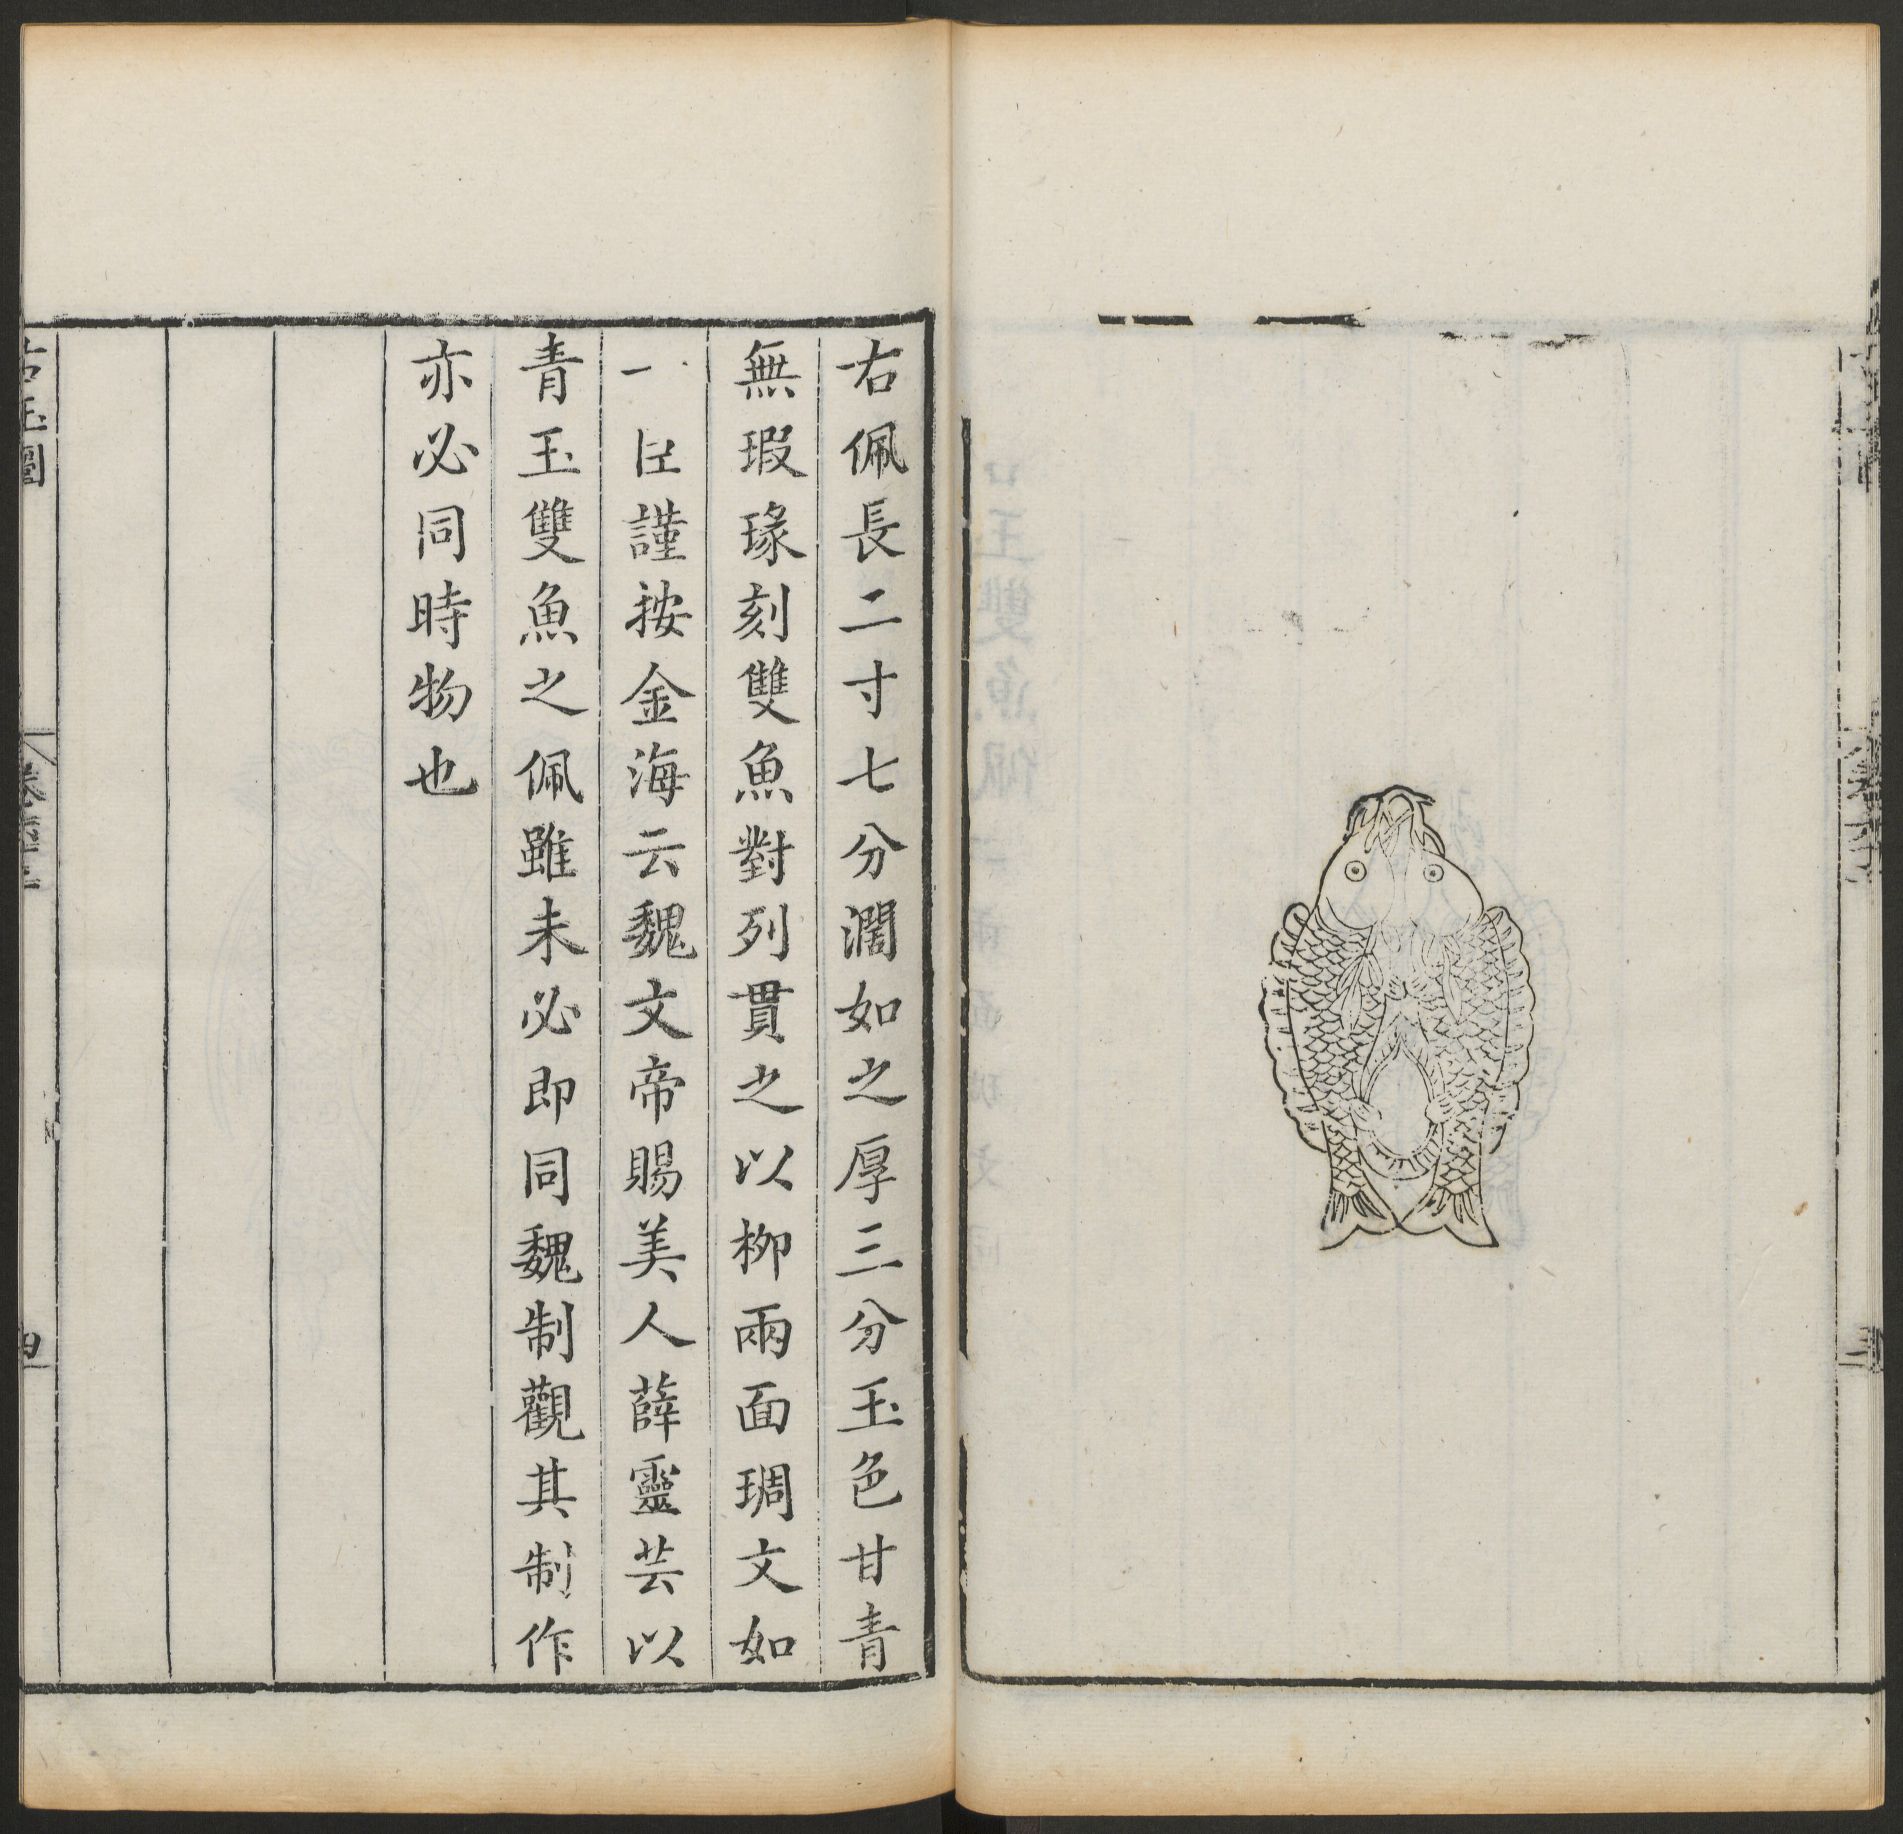 右佩長二寸七分濶如之厚三分玉色甘青
無瑕瑑刻雙魚對列貫之以柳兩面琱文如
一臣謹按金海云魏文帝賜美人薛靈芸以
青玉雙魚之佩雖未必即同魏制觀其制作
亦必同時物也
古玉圖